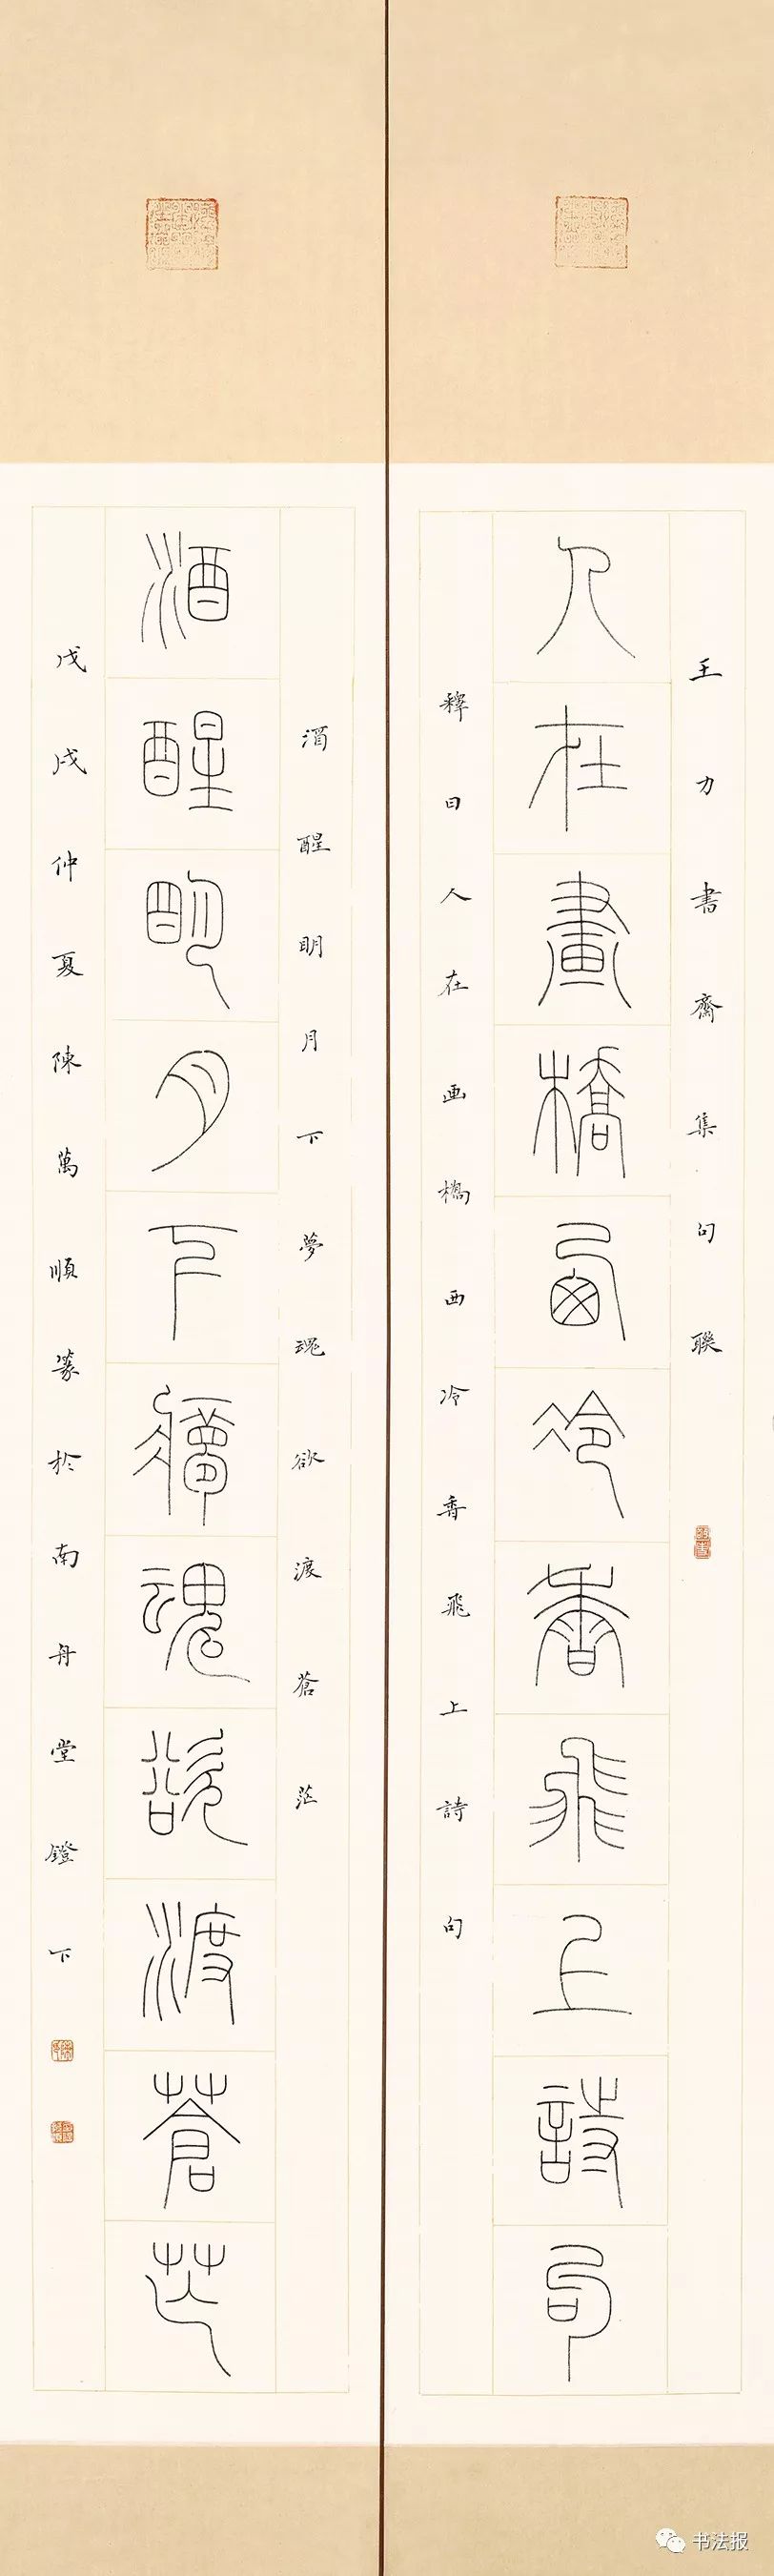 王力書齋集句聯
人在畫橋西冷香飛上詩句
釋曰人在画橋西冷香飛上詩句
酒醒明月下夢魂欲渡蒼茫
酒醒明月下夢魂欲渡蒼茫
戊戌仲夏陳萬順篆於南丹堂鐙下
书法报